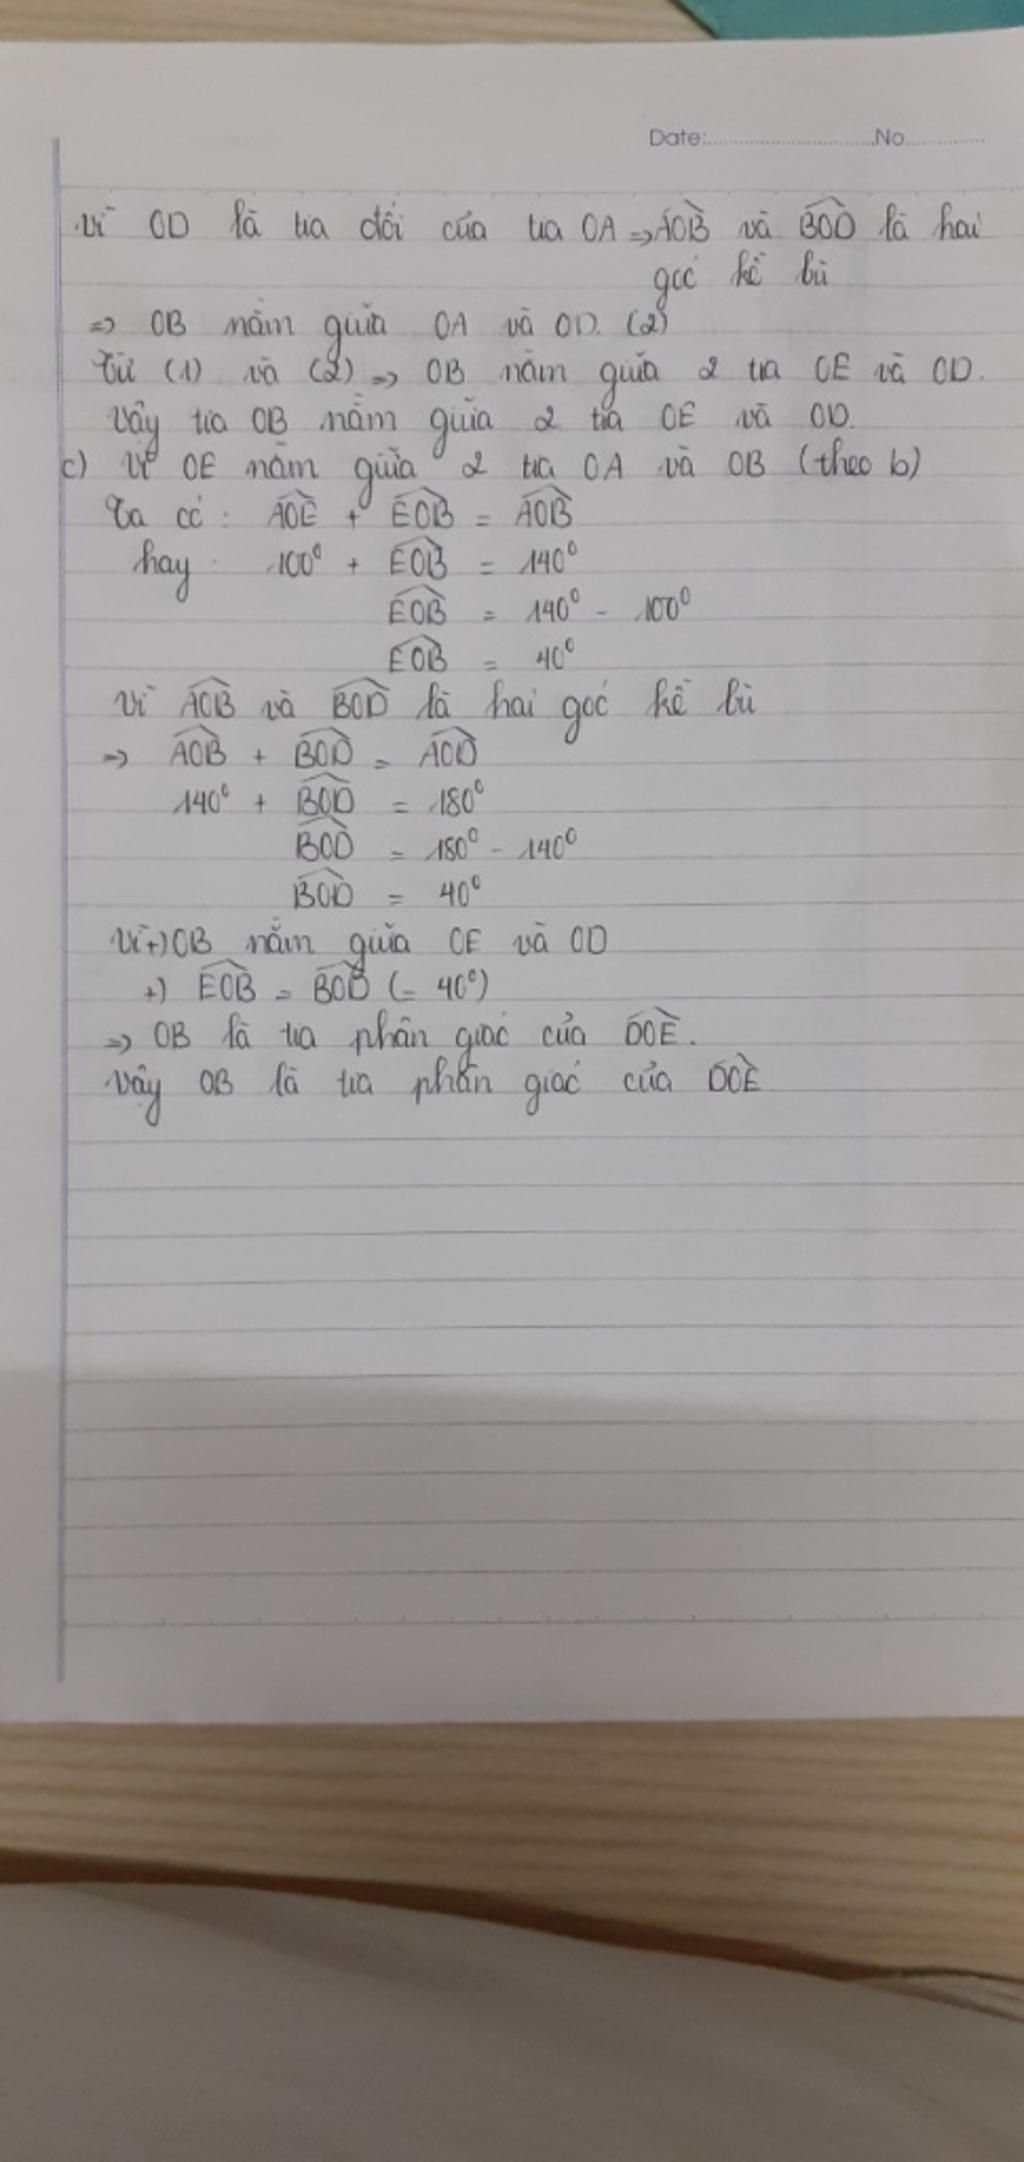 Date:..............................No...............
Vì OD là tia đối của tia OA => \widehat{AOB} và \widehat{BOD} là hai
góc kề bù
=> OB nằm giữa OA và OD. (2)
Từ (1) và (2) => OB nằm giữa 2 tia OE và OD.
Vậy tia OB nằm giữa 2 tia OE và OD.
c) Vì OE nằm giữa 2 tia OA và OB (theo b)
Ta có: \widehat{AOE} + \widehat{EOB} = \widehat{AOB}
hay: 100° + \widehat{EOB} = 140°
\widehat{EOB} = 140° - 100°
\widehat{EOB} = 40°
Vì \widehat{AOB} và \widehat{BOD} là hai góc kề bù
=> \widehat{AOB} + \widehat{BOD} = \widehat{AOD}
140° + \widehat{BOD} = 180°
\widehat{BOD} = 180° - 140°
\widehat{BOD} = 40°
Vì +) OB nằm giữa OE và OD
+) \widehat{EOB} = \widehat{BOD} (= 40°)
=> OB là tia phân giác của \widehat{DOE}.
Vậy OB là tia phân giác của \widehat{DOE}